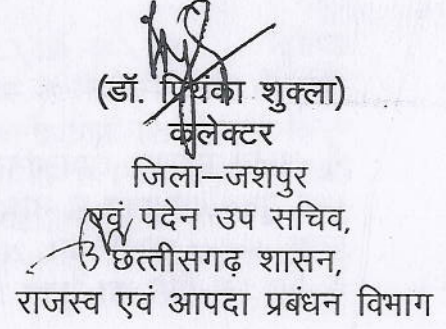 (डॉ. प्रियंका शुक्ला)
कलेक्टर
जिला–जशपुर
एवं पदेन उप सचिव,
छत्तीसगढ़ शासन,
राजस्व एवं आपदा प्रबंधन विभाग